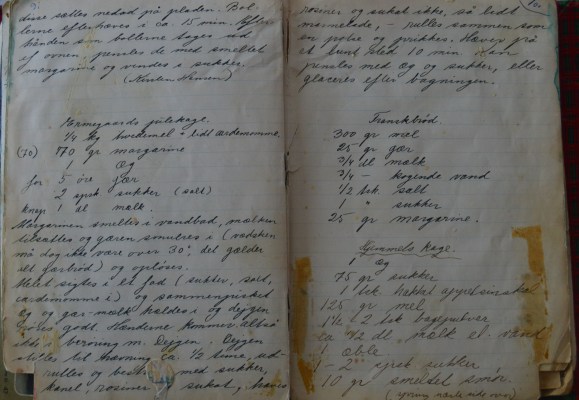 disse sættes nedad på pladen. Bol-
lerne efterhæves i ca 15 min. Efter-
hånden som bollerne tages ud
af ovnen, pensles de med smeltet
margarine og vendes i sukker.
(Kirsten Hansen)
Nørregaards julekage.
1/4 kg hvedemel + lidt cardemomme.
(70) 870 gr margarine
1 æg
for 5 øre gær
2 spsk sukker (salt)
knap 1 dl mælk.
Margarinen smeltes i vandbad, mælken
tilsættes og gæren smuldres i (vædsken
må dog ikke være over 30°, det gælder
alt gærbrød) og opløses.
Melet sigtes i et fad (sukker, salt,
cardemomme i) og sammenpisket
æg og gær-mælk hældes i og dejgen
godt. Hænderne kommer altså
ikke i berøring m. dejgen. Dejgen
stilles til hævning ca. 1/2 time, ud-
rulles og med sukker,
kanel, rosiner og sukat,
rosiner og sukat ikke, så lidt
marmelade, - rulles sammen som
en pølse og prikkes. Hæver på
et lunt sted 10 min
pensles med æg og sukker, eller
glaceres efter bagningen.
Franskbrød.
300 gr mel
25 gr gær
3/4 dl mælk
3/4 - kogende vand
1/2 tsk salt
1 " sukker
25 gr margarine.
Gammels kage.
æg
75 gr sukker
1 tsk hakket appelsinskal
125 gr mel
1 1/2 - 2 tsk bagepulver
ca 1/2 dl mælk el. vand
1 æble
1 - 2 spsk sukker
10 gr smeltet smør.